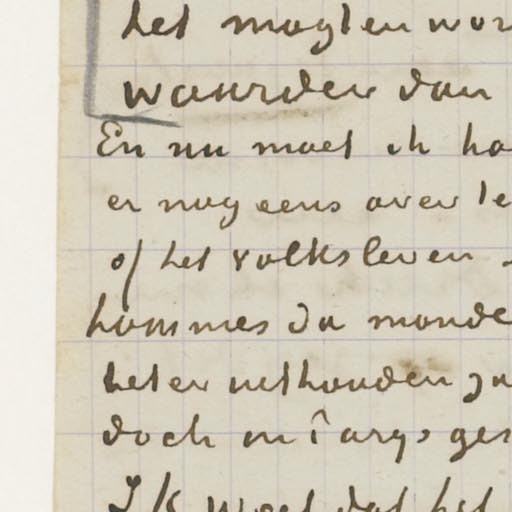 het mogten wor
waarden dan
En nu moet ik ho
er nog eens over te
of het volksleven
hommes du monde
het er uithouden zu
doch in Parys ges
Ik weet dat het